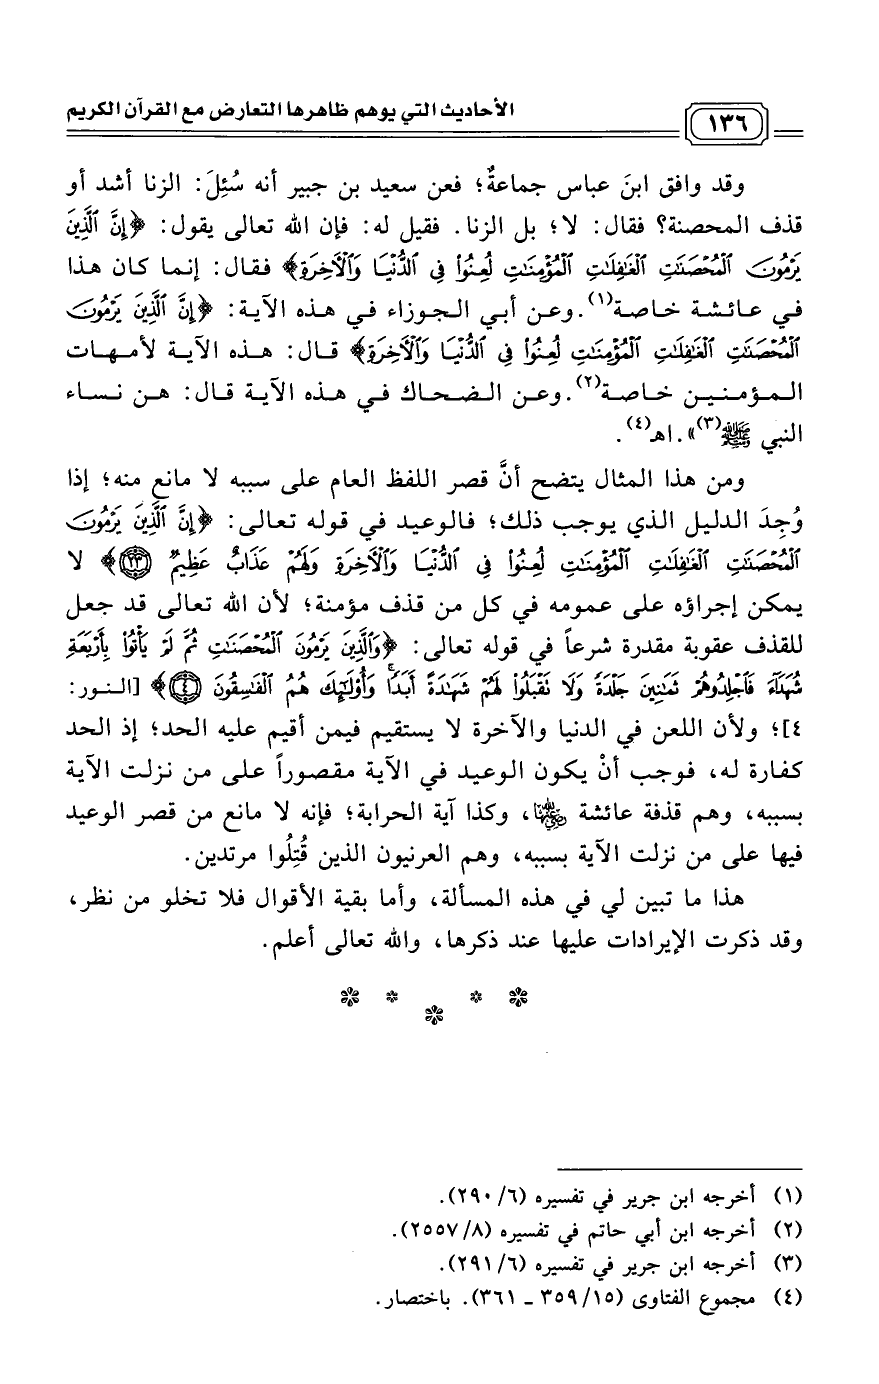 ١٣٦
الأحاديث التي يوهم ظاهرها التعارض مع القرآن الكريم
وقد وافق ابنَ عباس جماعةٌ؛ فعن سعيد بن جبير أنه سُئِلَ: الزنا أشد أو
قذف المحصنة؟ فقال: لا؛ بل الزنا. فقيل له: فإن الله تعالى يقول: ﴿إِنَّ ٱلَّذِينَ
يَرْمُونَ ٱلْمُحْصَنَٰتِ ٱلْغَٰفِلَٰتِ ٱلْمُؤْمِنَٰتِ لُعِنُوا۟ فِى ٱلدُّنْيَا وَٱلْءَاخِرَةِ﴾ فقال: إنما كان هذا
في عائشة خاصة(١). وعن أبي الجوزاء في هذه الآية: ﴿إِنَّ ٱلَّذِينَ يَرْمُونَ
ٱلْمُحْصَنَٰتِ ٱلْغَٰفِلَٰتِ ٱلْمُؤْمِنَٰتِ لُعِنُوا۟ فِى ٱلدُّنْيَا وَٱلْءَاخِرَةِ﴾ قال: هذه الآية لأمهات
المؤمنين خاصة(٢). وعن الضحاك في هذه الآية قال: هن نساء
النبي ﷺ(٣)». اهـ(٤).
ومن هذا المثال يتضح أنَّ قصر اللفظ العام على سببه لا مانع منه؛ إذا
وُجِدَ الدليل الذي يوجب ذلك؛ فالوعيد في قوله تعالى: ﴿إِنَّ ٱلَّذِينَ يَرْمُونَ
ٱلْمُحْصَنَٰتِ ٱلْغَٰفِلَٰتِ ٱلْمُؤْمِنَٰتِ لُعِنُوا۟ فِى ٱلدُّنْيَا وَٱلْءَاخِرَةِ وَلَهُمْ عَذَابٌ عَظِيمٌ ٢٣﴾ لا
يمكن إجراؤه على عمومه في كل من قذف مؤمنة؛ لأن الله تعالى قد جعل
للقذف عقوبة مقدرة شرعاً في قوله تعالى: ﴿وَٱلَّذِينَ يَرْمُونَ ٱلْمُحْصَنَٰتِ ثُمَّ لَمْ يَأْتُوا۟ بِأَرْبَعَةِ
شُهَدَآءَ فَٱجْلِدُوهُمْ ثَمَٰنِينَ جَلْدَةً وَلَا تَقْبَلُوا۟ لَهُمْ شَهَٰدَةً أَبَدًا ۚ وَأُو۟لَٰٓئِكَ هُمُ ٱلْفَٰسِقُونَ ٤﴾ [النور:
٤]؛ ولأن اللعن في الدنيا والآخرة لا يستقيم فيمن أقيم عليه الحد؛ إذ الحد
كفارة له، فوجب أنْ يكون الوعيد في الآية مقصوراً على من نزلت الآية
بسببه، وهم قذفة عائشة رضي الله عنها، وكذا آية الحرابة؛ فإنه لا مانع من قصر الوعيد
فيها على من نزلت الآية بسببه، وهم العرنيون الذين قُتِلُوا مرتدين.
هذا ما تبين لي في هذه المسألة، وأما بقية الأقوال فلا تخلو من نظر،
وقد ذكرت الإيرادات عليها عند ذكرها، والله تعالى أعلم.
(١) أخرجه ابن جرير في تفسيره (٦/ ٢٩٠).
(٢) أخرجه ابن أبي حاتم في تفسيره (٨/ ٢٥٥٧).
(٣) أخرجه ابن جرير في تفسيره (٦/ ٢٩١).
(٤) مجموع الفتاوى (١٥/ ٣٥٩ ـ ٣٦١). باختصار.